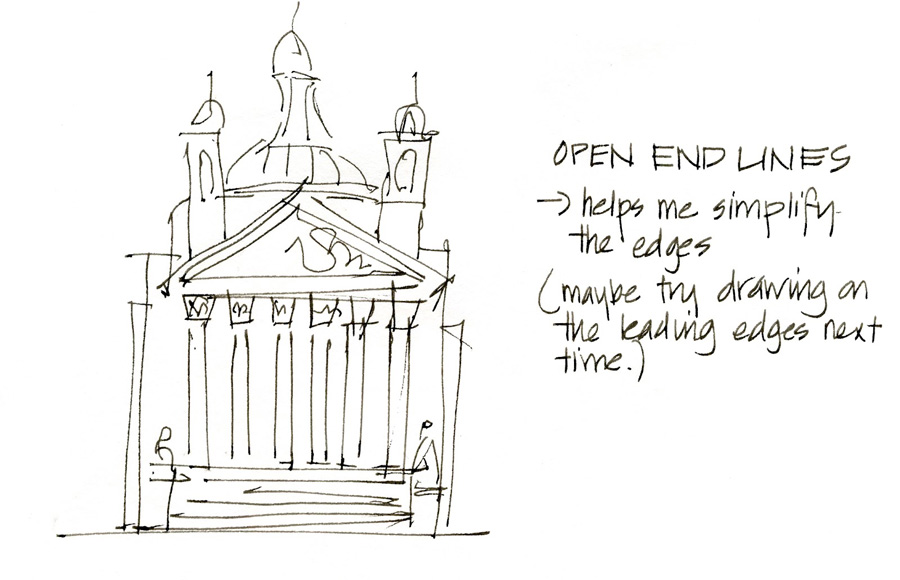 OPEN END LINES
→ helps me simplify
the edges
(maybe try drawing on
the leading edges next
time.)